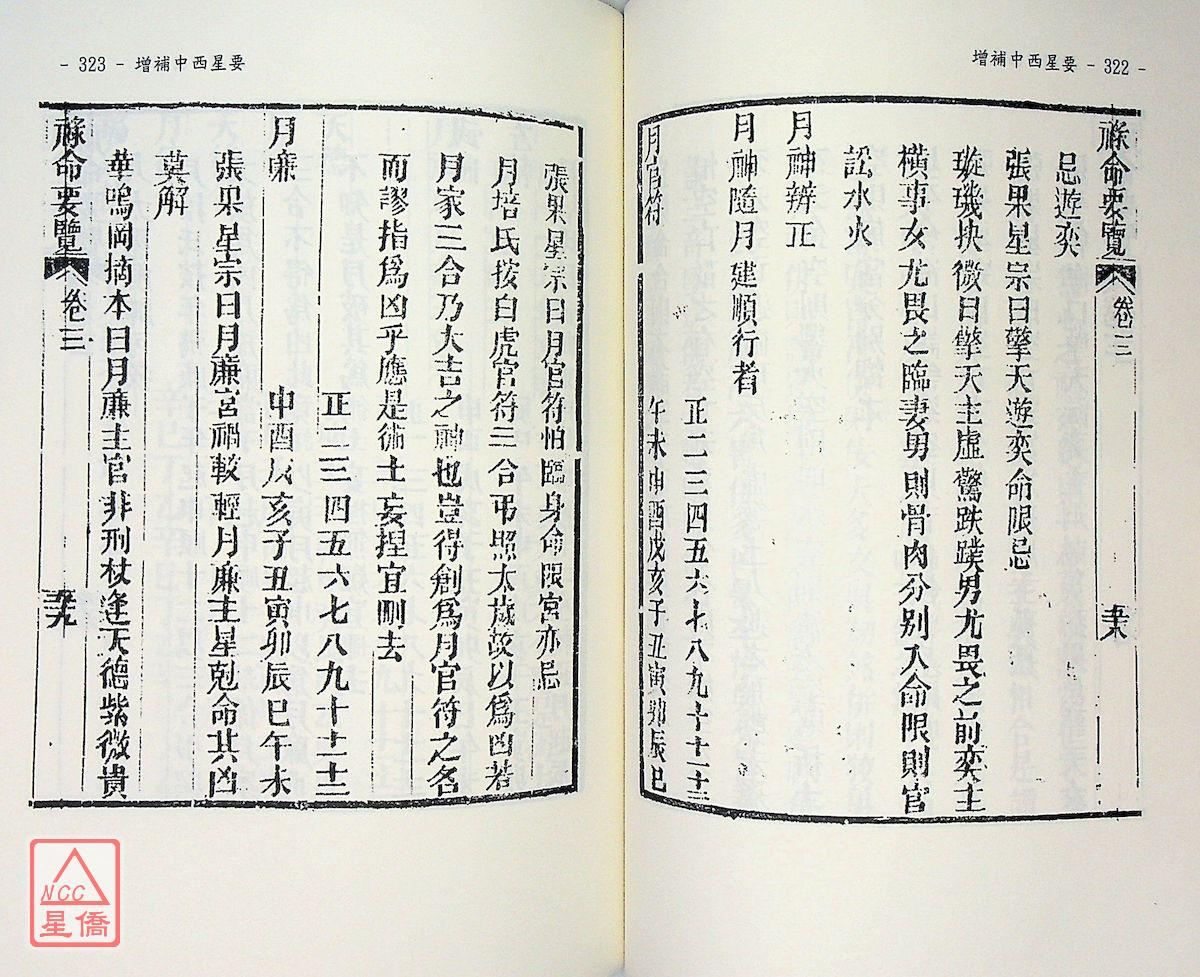 增補中西星要 - 322 -
祿命要覽 卷三 五十八
忌遊奕
張果星宗曰擎天遊奕命限忌
璇璣抉微曰擎天主虛驚跌蹼男尤畏之前奕主
橫事女尤畏之臨妻男則骨肉分別入命限則官
訟水火
月神辨正
月神隨月建順行者
正二三四五六七八九十十一十二
月官符 午未申酉戌亥子丑寅卯辰巳
- 323 - 增補中西星要
張果星宗曰月官符怕臨身命限宮亦忌
月培氏按白虎官符三合弔照太歲故以爲凶若
月家三合乃大吉之神也豈得創爲月官符之名
而謬指爲凶乎應是術士妄捏宜刪去
正二三四五六七八九十十一十二
月廉 申酉戌亥子丑寅卯辰巳午未
張果星宗曰月廉宮禍較輕月廉主星剋命其凶
莫解
華鳴岡摘本曰月廉主官非刑杖逢天德紫微貴
祿命要覽 卷三 五十九
NCC
星僑